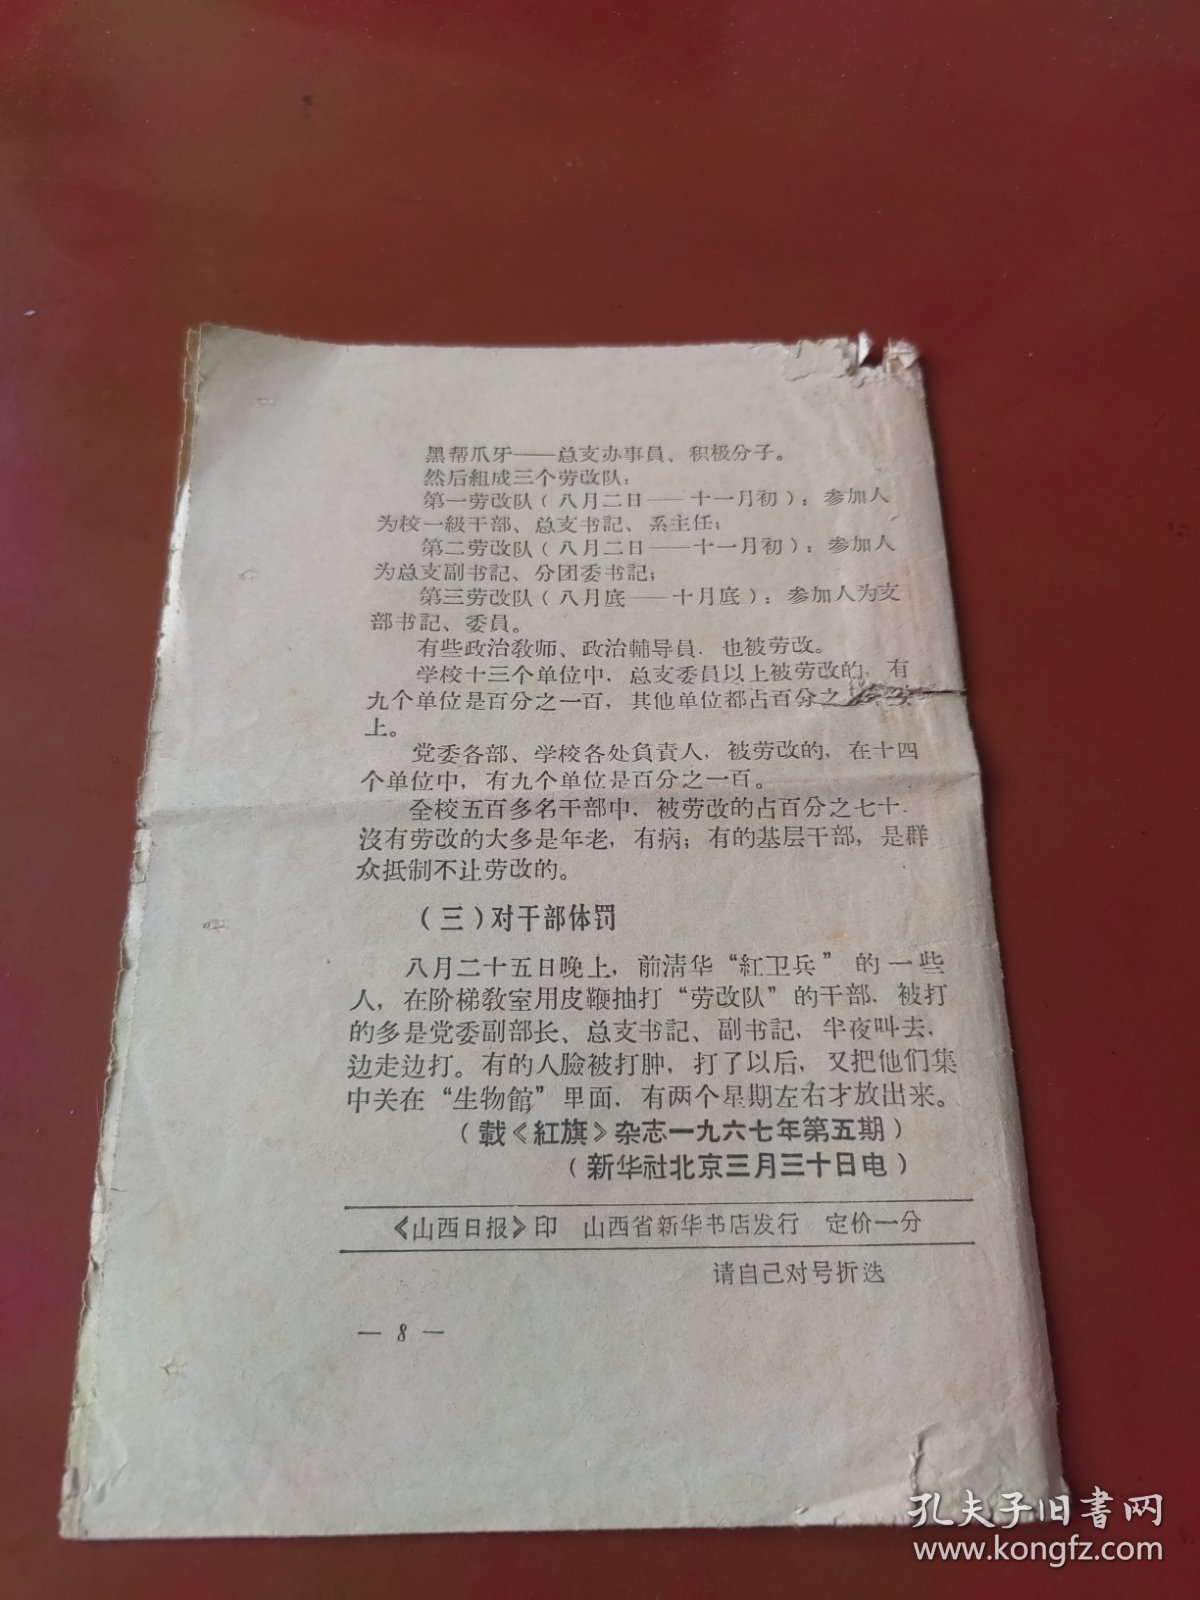 黑帮爪牙——总支办事員、积极分子。
然后組成三个劳改队：
第一劳改队（八月二日——十一月初）：参加人
为校一級干部、总支书記、系主任；
第二劳改队（八月二日——十一月初）：参加人
为总支副书記、分团委书記；
第三劳改队（八月底——十月底）：参加人为支
部书記、委員。
有些政治敎师、政治輔导員，也被劳改。
学校十三个单位中，总支委員以上被劳改的，有
九个单位是百分之一百，其他单位都占百分之
上。
党委各部、学校各处負責人，被劳改的，在十四
个单位中，有九个单位是百分之一百。
全校五百多名干部中，被劳改的占百分之七十．
沒有劳改的大多是年老，有病；有的基层干部，是群
众抵制不让劳改的。
（三）对干部体罚
八月二十五日晚上，前清华“紅卫兵”的一些
人，在阶梯敎室用皮鞭抽打“劳改队”的干部．被打
的多是党委副部长、总支书記、副书記，半夜叫去，
边走边打。有的人臉被打肿，打了以后，又把他们集
中关在“生物館”里面，有两个星期左右才放出来。
（載《紅旗》杂志一九六七年第五期）
（新华社北京三月三十日电）
《山西日报》印 山西省新华书店发行 定价一分
请自己对号折迭
— 8 —
孔夫子旧書网
www.kongfz.com